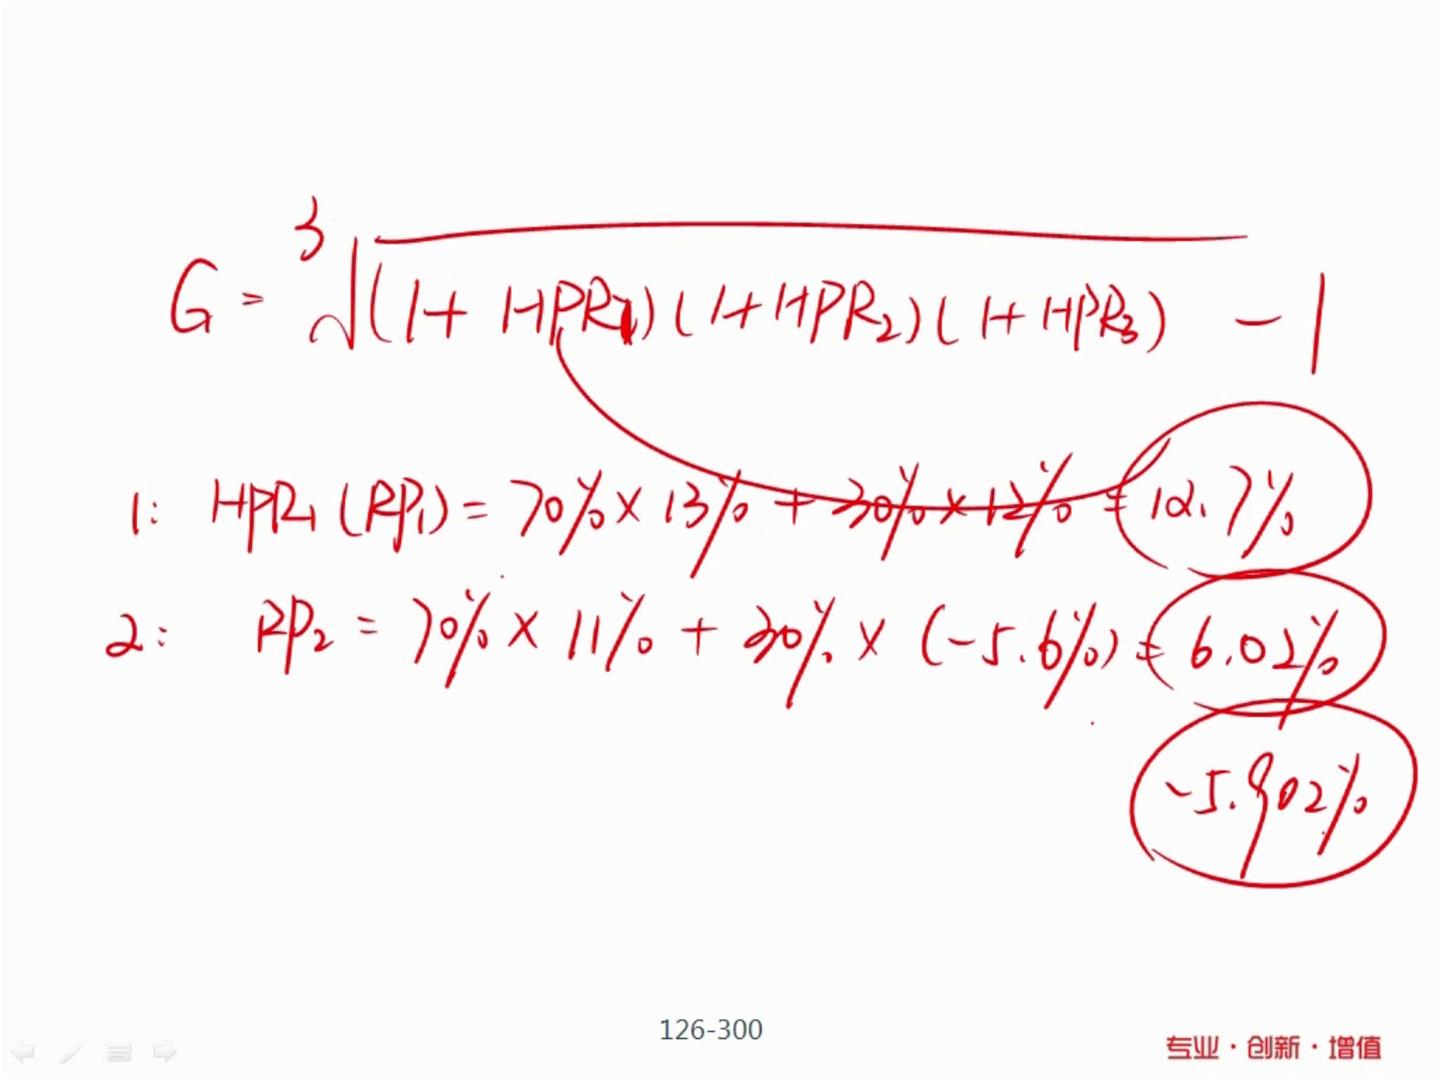 G = ³√(1+HPR1)(1+HPR2)(1+HPR3) - 1
1: HPR1 (RP1) = 70% × 13% + 30% × 12% = 12.7%
2: RP2 = 70% × 11% + 30% × (-5.6%) = 6.02%
-5.902%
126-300
专业·创新·增值